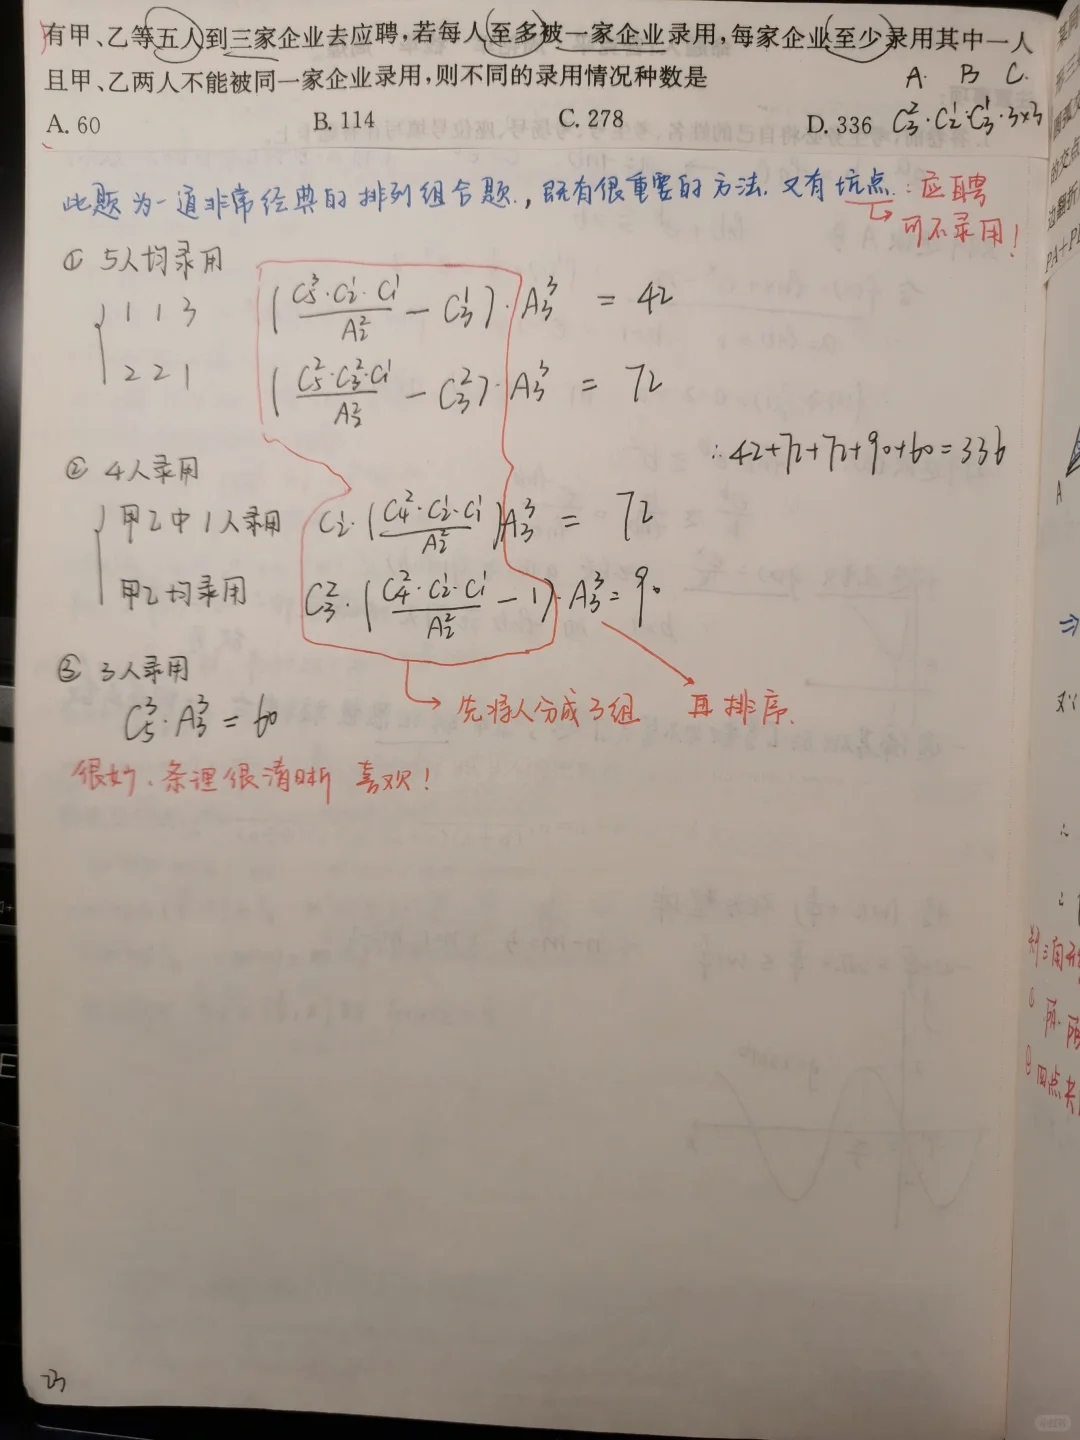 有甲、乙等五人到三家企业去应聘,若每人至多被一家企业录用,每家企业至少录用其中一人
且甲、乙两人不能被同一家企业录用,则不同的录用情况种数是
A B C
A. 60 B. 114 C. 278 D. 336 C₃²·C₂¹·C₃¹·3×3
此题为一道非常经典的排列组合题,既有很重要的方法.又有坑点:应聘
可不录用!
① 5人均录用
1 1 3 (C₅³·C₂¹·C₁¹/A₂² − C₃¹)·A₃³ = 42
2 2 1 (C₅²·C₃²·C₁¹/A₂² − C₃²)·A₃³ = 72
∴42+72+72+90+60=336
② 4人录用
甲乙中1人录用 C₂¹·(C₄²·C₂¹·C₁¹/A₂²)A₃³ = 72
甲乙均录用 C₃²·(C₄²·C₂¹·C₁¹/A₂² − 1)·A₃³=90
③ 3人录用
先将人分成3组 再排序.
C₅³·A₃³=60
很妙、条理很清晰 喜欢!